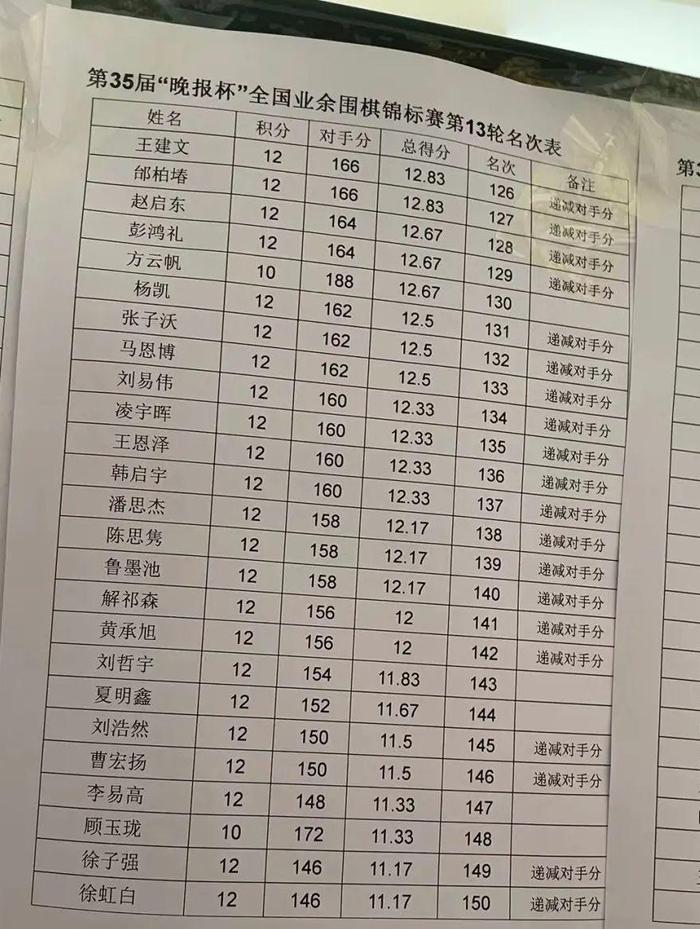 第35届“晚报杯”全国业余围棋锦标赛第13轮名次表
姓名 积分 对手分 总得分 名次 备注
王建文 12 166 12.83 126 递减对手分
邰柏堾 12 166 12.83 127 递减对手分
赵启东 12 164 12.67 128 递减对手分
彭鸿礼 12 164 12.67 129 递减对手分
方云帆 10 188 12.67 130
杨凯 12 162 12.5 131 递减对手分
张子沃 12 162 12.5 132 递减对手分
马恩博 12 162 12.5 133 递减对手分
刘易伟 12 160 12.33 134 递减对手分
凌宇晖 12 160 12.33 135 递减对手分
王恩泽 12 160 12.33 136 递减对手分
韩启宇 12 160 12.33 137 递减对手分
潘思杰 12 158 12.17 138 递减对手分
陈思隽 12 158 12.17 139 递减对手分
鲁墨池 12 158 12.17 140 递减对手分
解祁森 12 156 12 141 递减对手分
黄承旭 12 156 12 142 递减对手分
刘哲宇 12 154 11.83 143
夏明鑫 12 152 11.67 144
刘浩然 12 150 11.5 145 递减对手分
曹宏扬 12 150 11.5 146 递减对手分
李易高 12 148 11.33 147
顾玉珑 10 172 11.33 148
徐子强 12 146 11.17 149 递减对手分
徐虹白 12 146 11.17 150 递减对手分